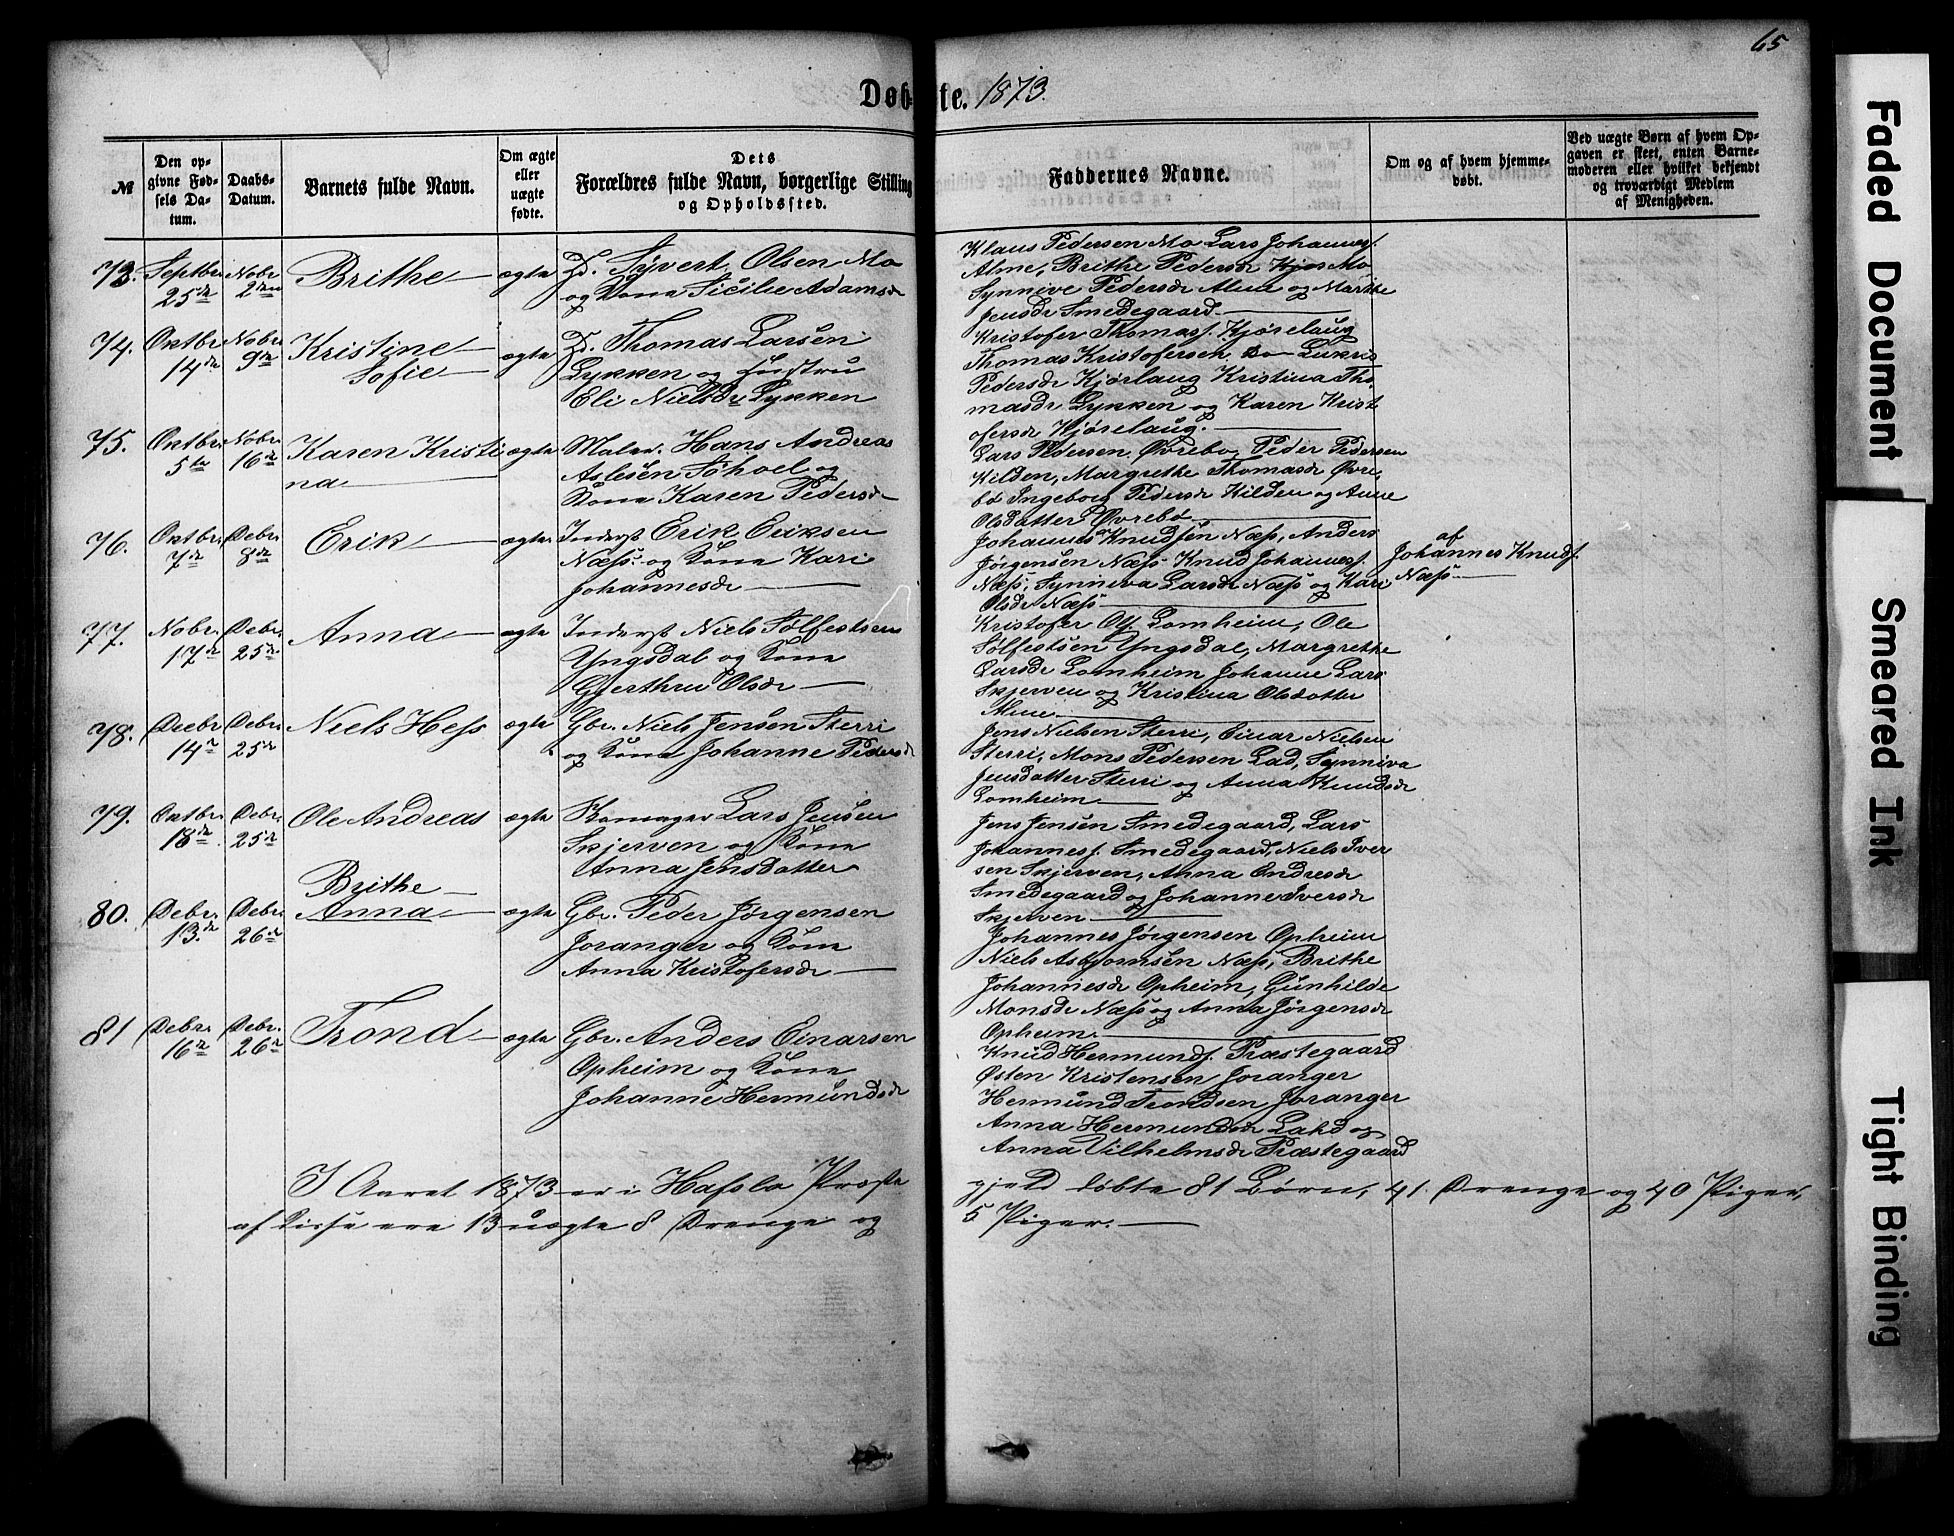 65
Døb te. 1873.
№
Den op-
givne Fød-
sels Da-
tum.
Daabs-
Datum.
Barnets fulde Navn.
Om ægte
eller
uægte
fødte.
Dets
Forældres fulde Navn, borgerlige Stilling
og Opholdssted.
Faddernes Navne.
Om og af hvem hjemme-
døbt.
Ved uægte Børn af hvem Op-
gaven er skeet, enten Barne-
moderen eller hvilket bekjendt
og troværdigt Medlem
af Menigheden.
73. Septbr. 25de
Nobr. 2den
Brithe
ægte
Sjvert Olsen Mo
og Kone Sicilie Adamsdr
Klaus Pedersen Mo Lars Johannesf.
Alme, Brithe Pedersdr Mo
Synnive Pedersdr Alme og Marithe
Jensdr Smedegaard
74. Oktbr. 14de
Nobr. 9de
Kristine
Sofie
ægte
Thomas Larsen
Lykken og Hustru
Eli Nielsdr Lykken
Kristofer Thomasf. Kjørelaug
Thomas Kristofersen Do Lukris
Pedersdr Kjørlaug Kristina Tho
masdr Lykken og Karen Krist
ofersdr Kjørelaug.
75. Oktbr. 5te
Nobr. 16de
Karen Kristi
na
ægte
Maler. Hans Andreas
Aslesen Søhoel og
Kone Karen Pedersdr
Lars Pedersen Øvrebø, Peder Pedersen
Kilden, Margrethe Thomasdr Øvre
bø Ingeborg Pedersdr Kilden og Anne
Olsdatter Øvrebø
76. Oktbr. 7de
Debr. 8de
Erik
ægte
Inderst Erik Eriksen
Næss og Kone Kari
Johannesdr
Johannes Knudsen Næss, Anders
Jørgensen Næss Knud Johannesf.
Næss, Synniva Larsdr Næss og Kari
Olsdr Næss
af
Johannes Knudf.
Næss
77. Nobr. 17de
Debr. 25de
Anna
ægte
Inderst Niels Sølfestsen
Yngsdal og Kone
Gjerthru Olsdr
Kristofer Olf. Lomheim, Ole
Sølfestsen Yngsdal, Margrethe
Larsdr Lomheim Johanne Lars
Skjerven og Kristina Olsdotter
78. Debr. 14de
Debr. 25de
Niels Hess
ægte
Gbr. Niels Jensen Sterri
og Kone Johanne Pedersdr
Jens Nielsen Sterri, Einar Nielsen
Sterri, Mons Pedersen Lad, Synniva
Jensdatter Sterri og Anna Knudsdr
Lomheim
79. Oktbr. 18de
Debr. 25de
Ole Andreas
ægte
Skomager Lars Jensen
Skjerven og Kone
Anna Jensdatter
Jens Jensen Smedegaard, Lars
Johannesf. Smedegaard, Niels Iver
sen Skjerven, Anna Endresdr
Smedegaard og Johanne Iversdr
Skjerven
80. Debr. 13de
Debr. 26de
Brithe
Anna
ægte
Gbr. Peder Jørgensen
Joranger og Kone
Anna Kristofersdr
Johannes Jørgensen Opheim
Niels Asbjornsen Næss, Brithe
Johannesdr Opheim, Gunhilde
Monsdr Næss og Anna Jørgensdr
Opheim
81 Debr. 16de
Debr. 26de
Trond
ægte
Gbr. Anders Einarsen
Opheim og Kone
Johanne Hermundsdr
Knud Hermundf. Præstegaard
Østen Kristensen Joranger
Hermund Trondsen Joranger
Anna Hermundsdr Lahd og
Anna Vilhelmsdr Præstegaard
I Aaret 1873 er i Hafslo Præste gjeld døbte 81 Børn, 41 Drenge og 40 Piger,
af disse ere 13 uægte 8 Drenge og 5 Piger.
Faded Document
Smeared Ink
Tight Binding